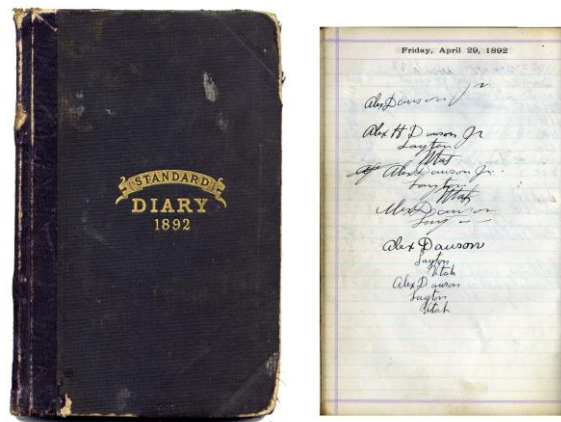 STANDARD
DIARY
1892
Friday, April 29, 1892
Alex Dawson Jr
Alex H Dawson Jr
Layton
Utah
Alex Dawson Jr.
Layton
Utah
Alex Dawson
Layton
Alex Dawson
Layton
Utah
Alex Dawson
Layton
Utah